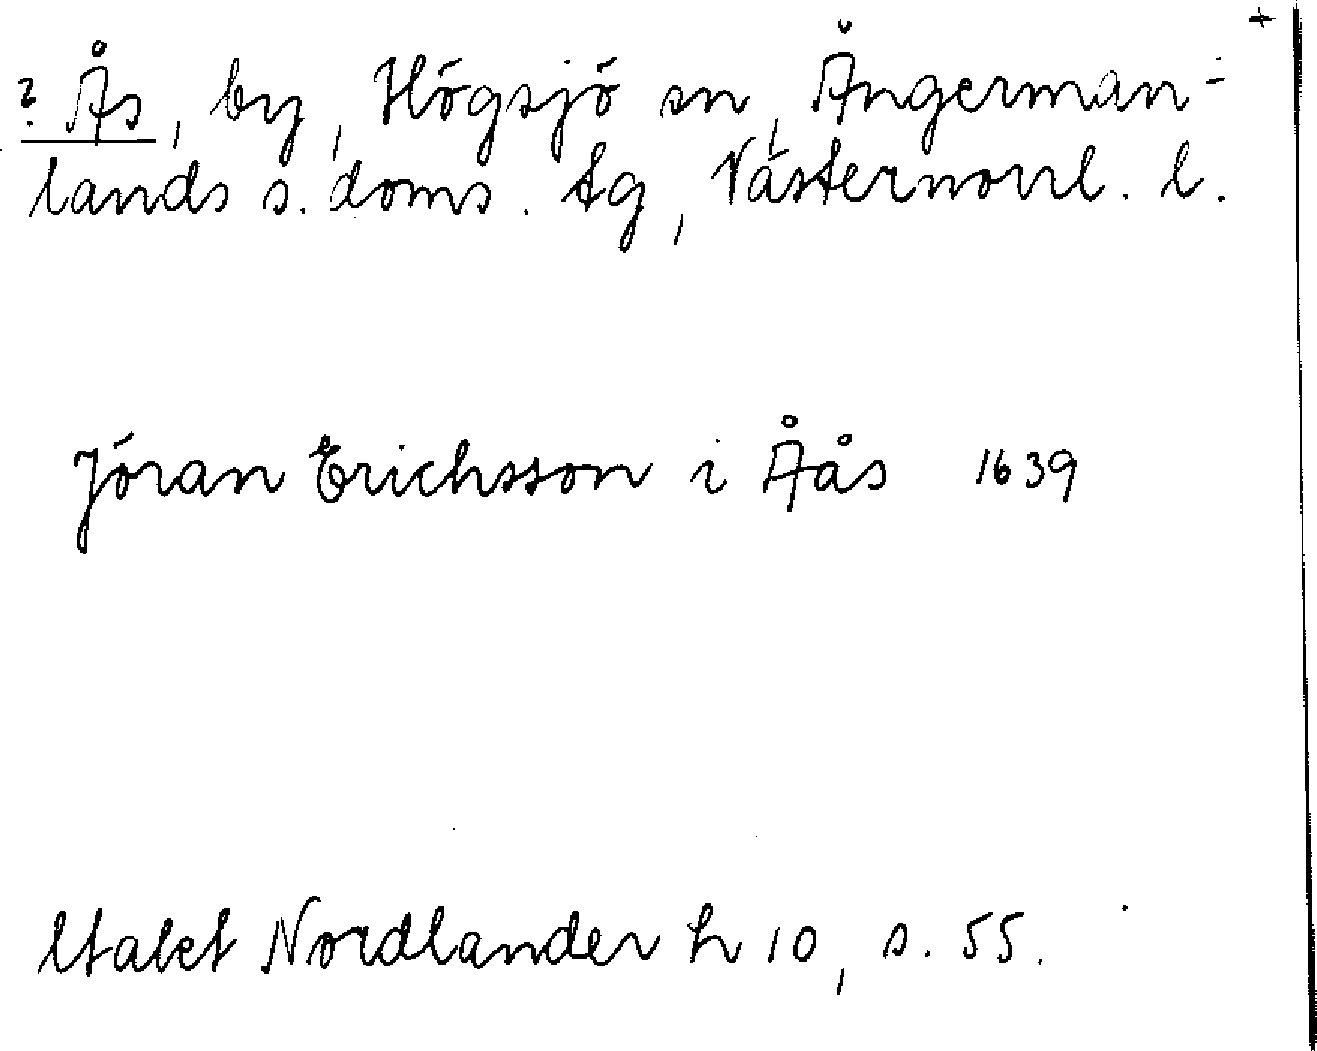 +
? Ås, by, Högsjö sn, Ångerman-
lands s. doms. tg, Västernorrl. l.
Jöran Erichsson i Åås 1639
Utalet Nordlander h 10, s. 55.